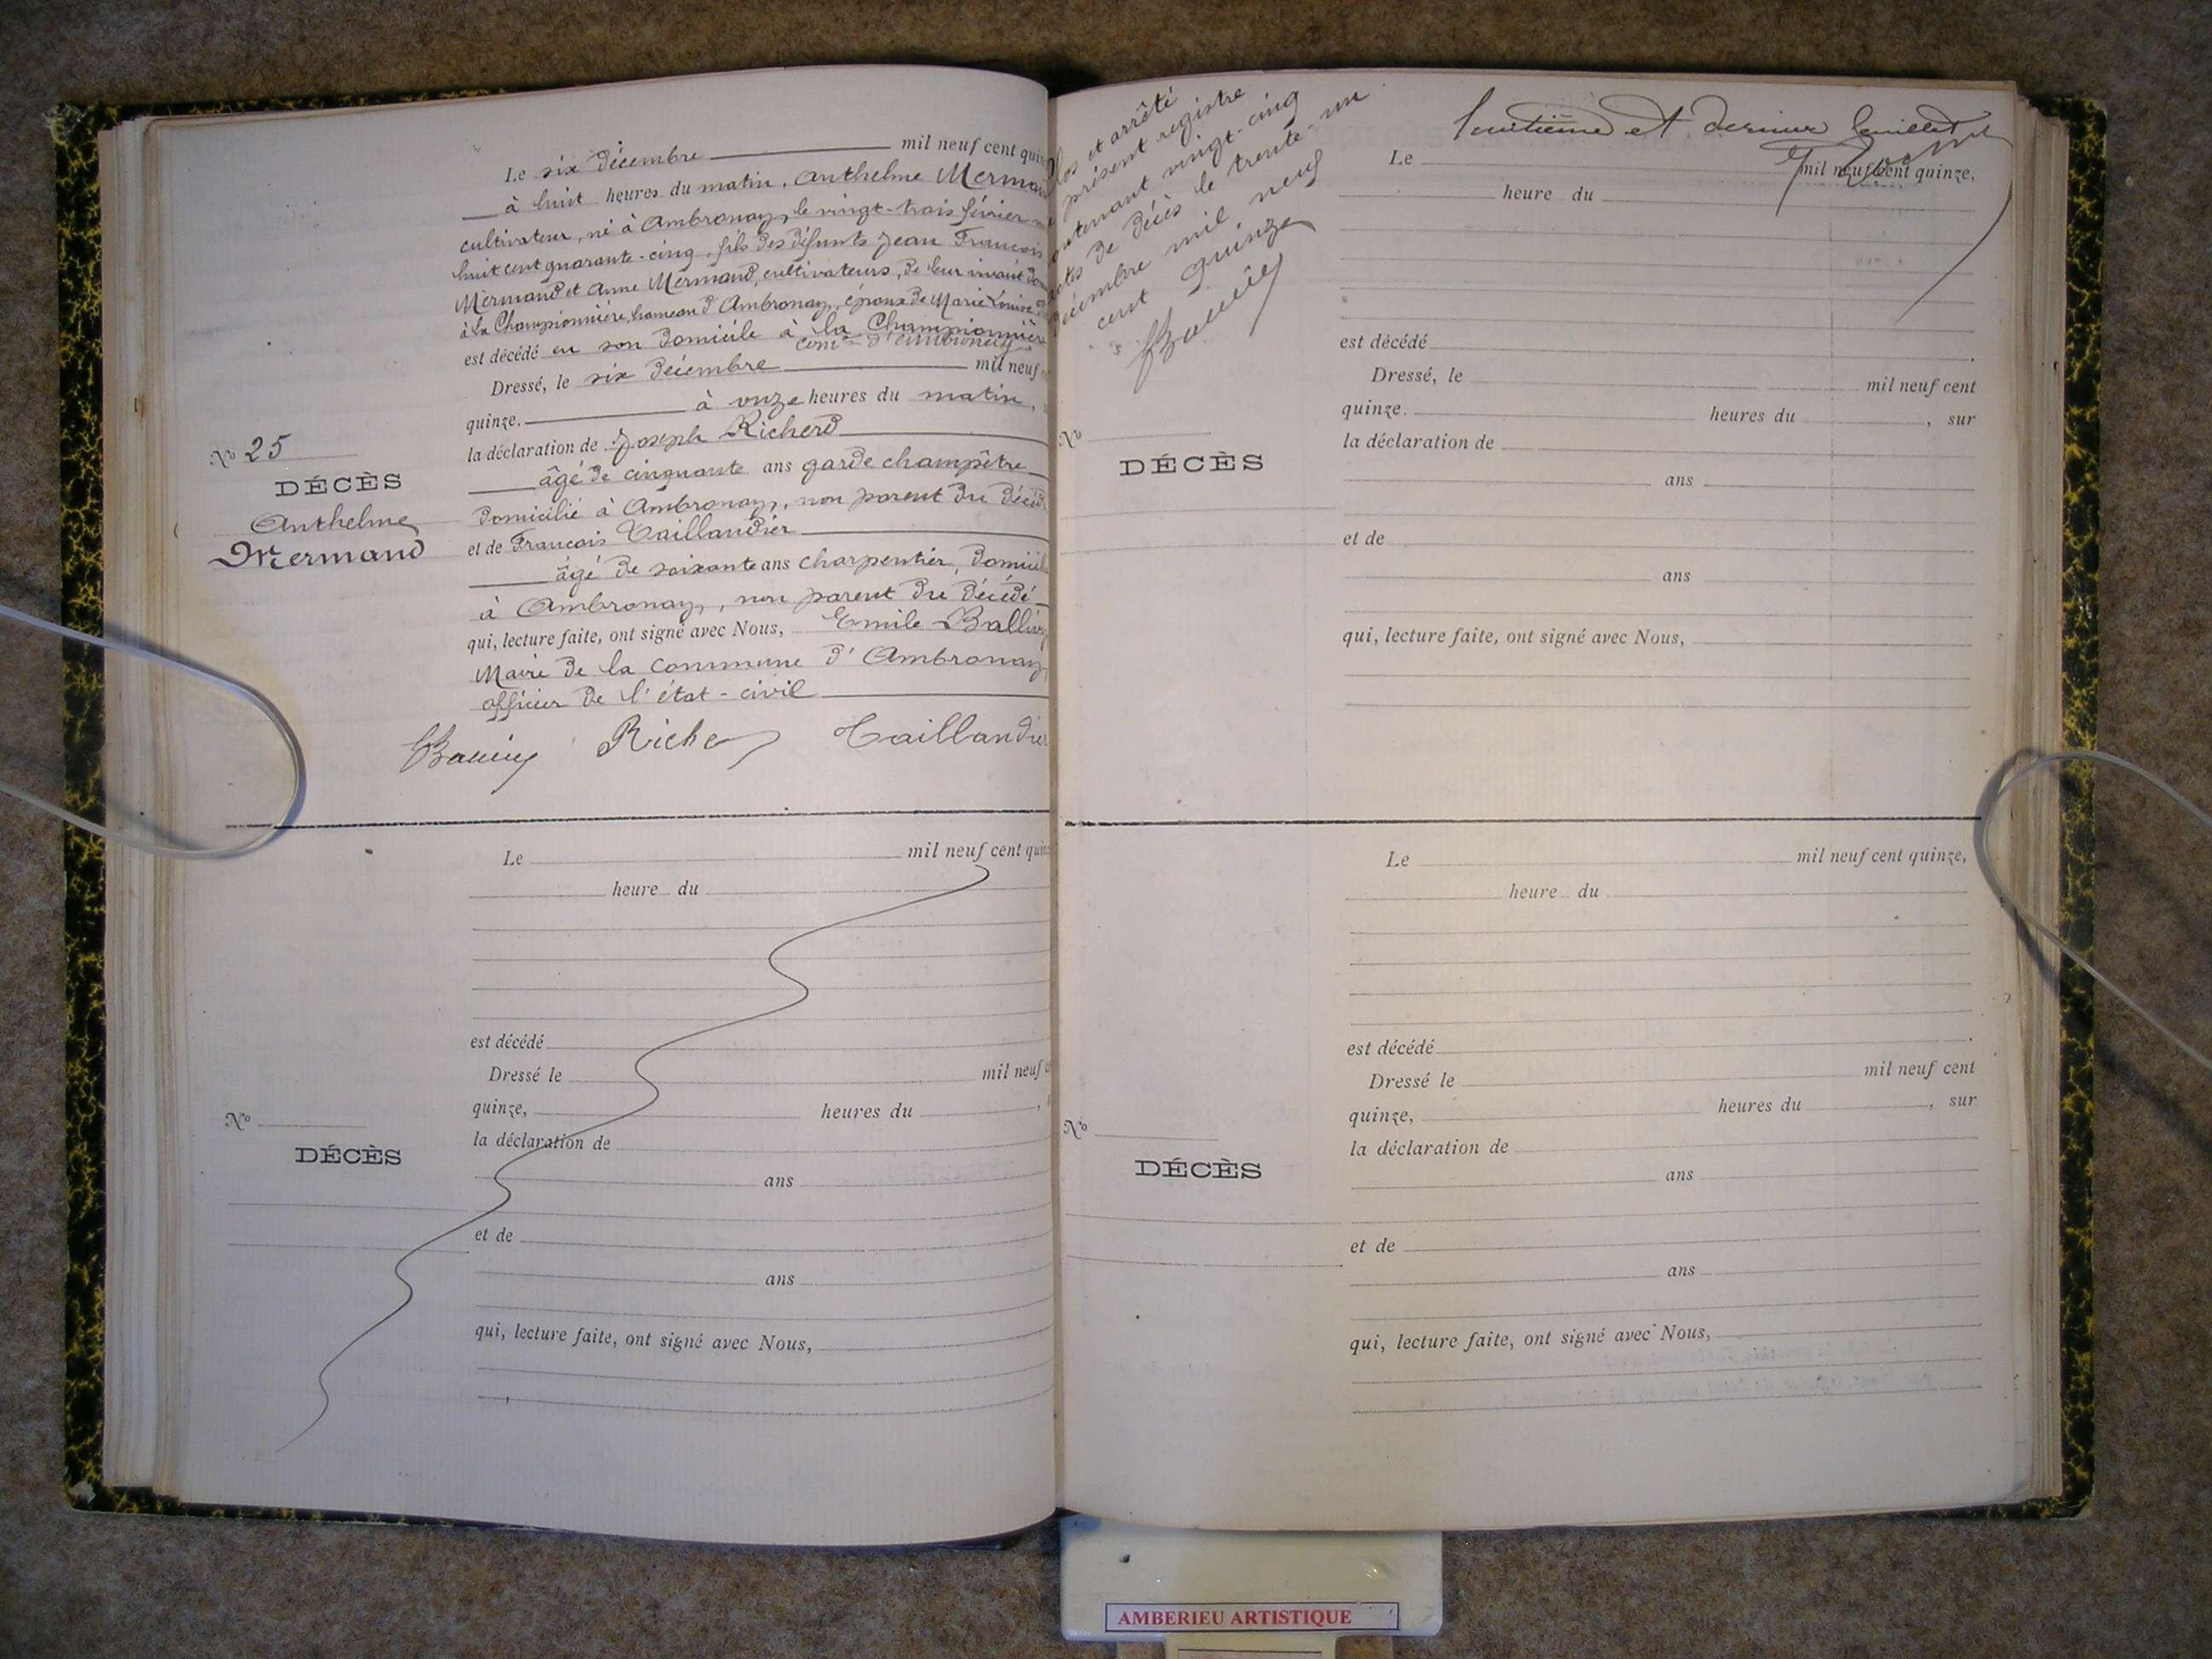 Le six décembre mil neuf cent
à huit heures du matin, Anthelme
cultivateur, né à Ambronay, le vingt-trois février
huit cent quarante-cinq, fils des défunts Jean François
Mermand et Anne Mermand, cultivateurs, de leur vivant
à la Championnière, hameau d'Ambronay, époux de Marie Louise
est décédé en son domicile à la Championnière
com^ne d'Ambronay
Dressé, le six décembre mil neuf
quinze, à onze heures du matin,
la déclaration de Joseph Richerd
âgé de cinquante ans garde champêtre
domicilié à Ambronay, non parent du
et de François Taillandier
âgé de soixante ans charpentier,
à Ambronay, non parent du décédé
qui, lecture faite, ont signé avec Nous, Emile
Maire de la commune d'Ambronay
officier de l'état-civil
Riche Taillandier
N° 25
DÉCÈS
Anthelme
Mermand
Le mil neuf cent
heure du
est décédé
Dressé le mil neuf
quinze, heures du ,
la déclaration de
ans
et de
ans
qui, lecture faite, ont signé avec Nous,
N°
DÉCÈS
et arrêté
présent registre
vingt-cinq
de décès le trente-un
mil neuf
cent quinze
et dernier feuillet
Le mil neuf cent quinze,
heure du
est décédé
Dressé, le mil neuf cent
quinze. heures du , sur
la déclaration de
ans
et de
ans
qui, lecture faite, ont signé avec Nous,
N°
DÉCÈS
Le mil neuf cent quinze,
heure du
est décédé
Dressé le mil neuf cent
quinze, heures du , sur
la déclaration de
ans
et de
ans
qui, lecture faite, ont signé avec Nous,
N°
DÉCÈS
AMBERIEU ARTISTIQUE